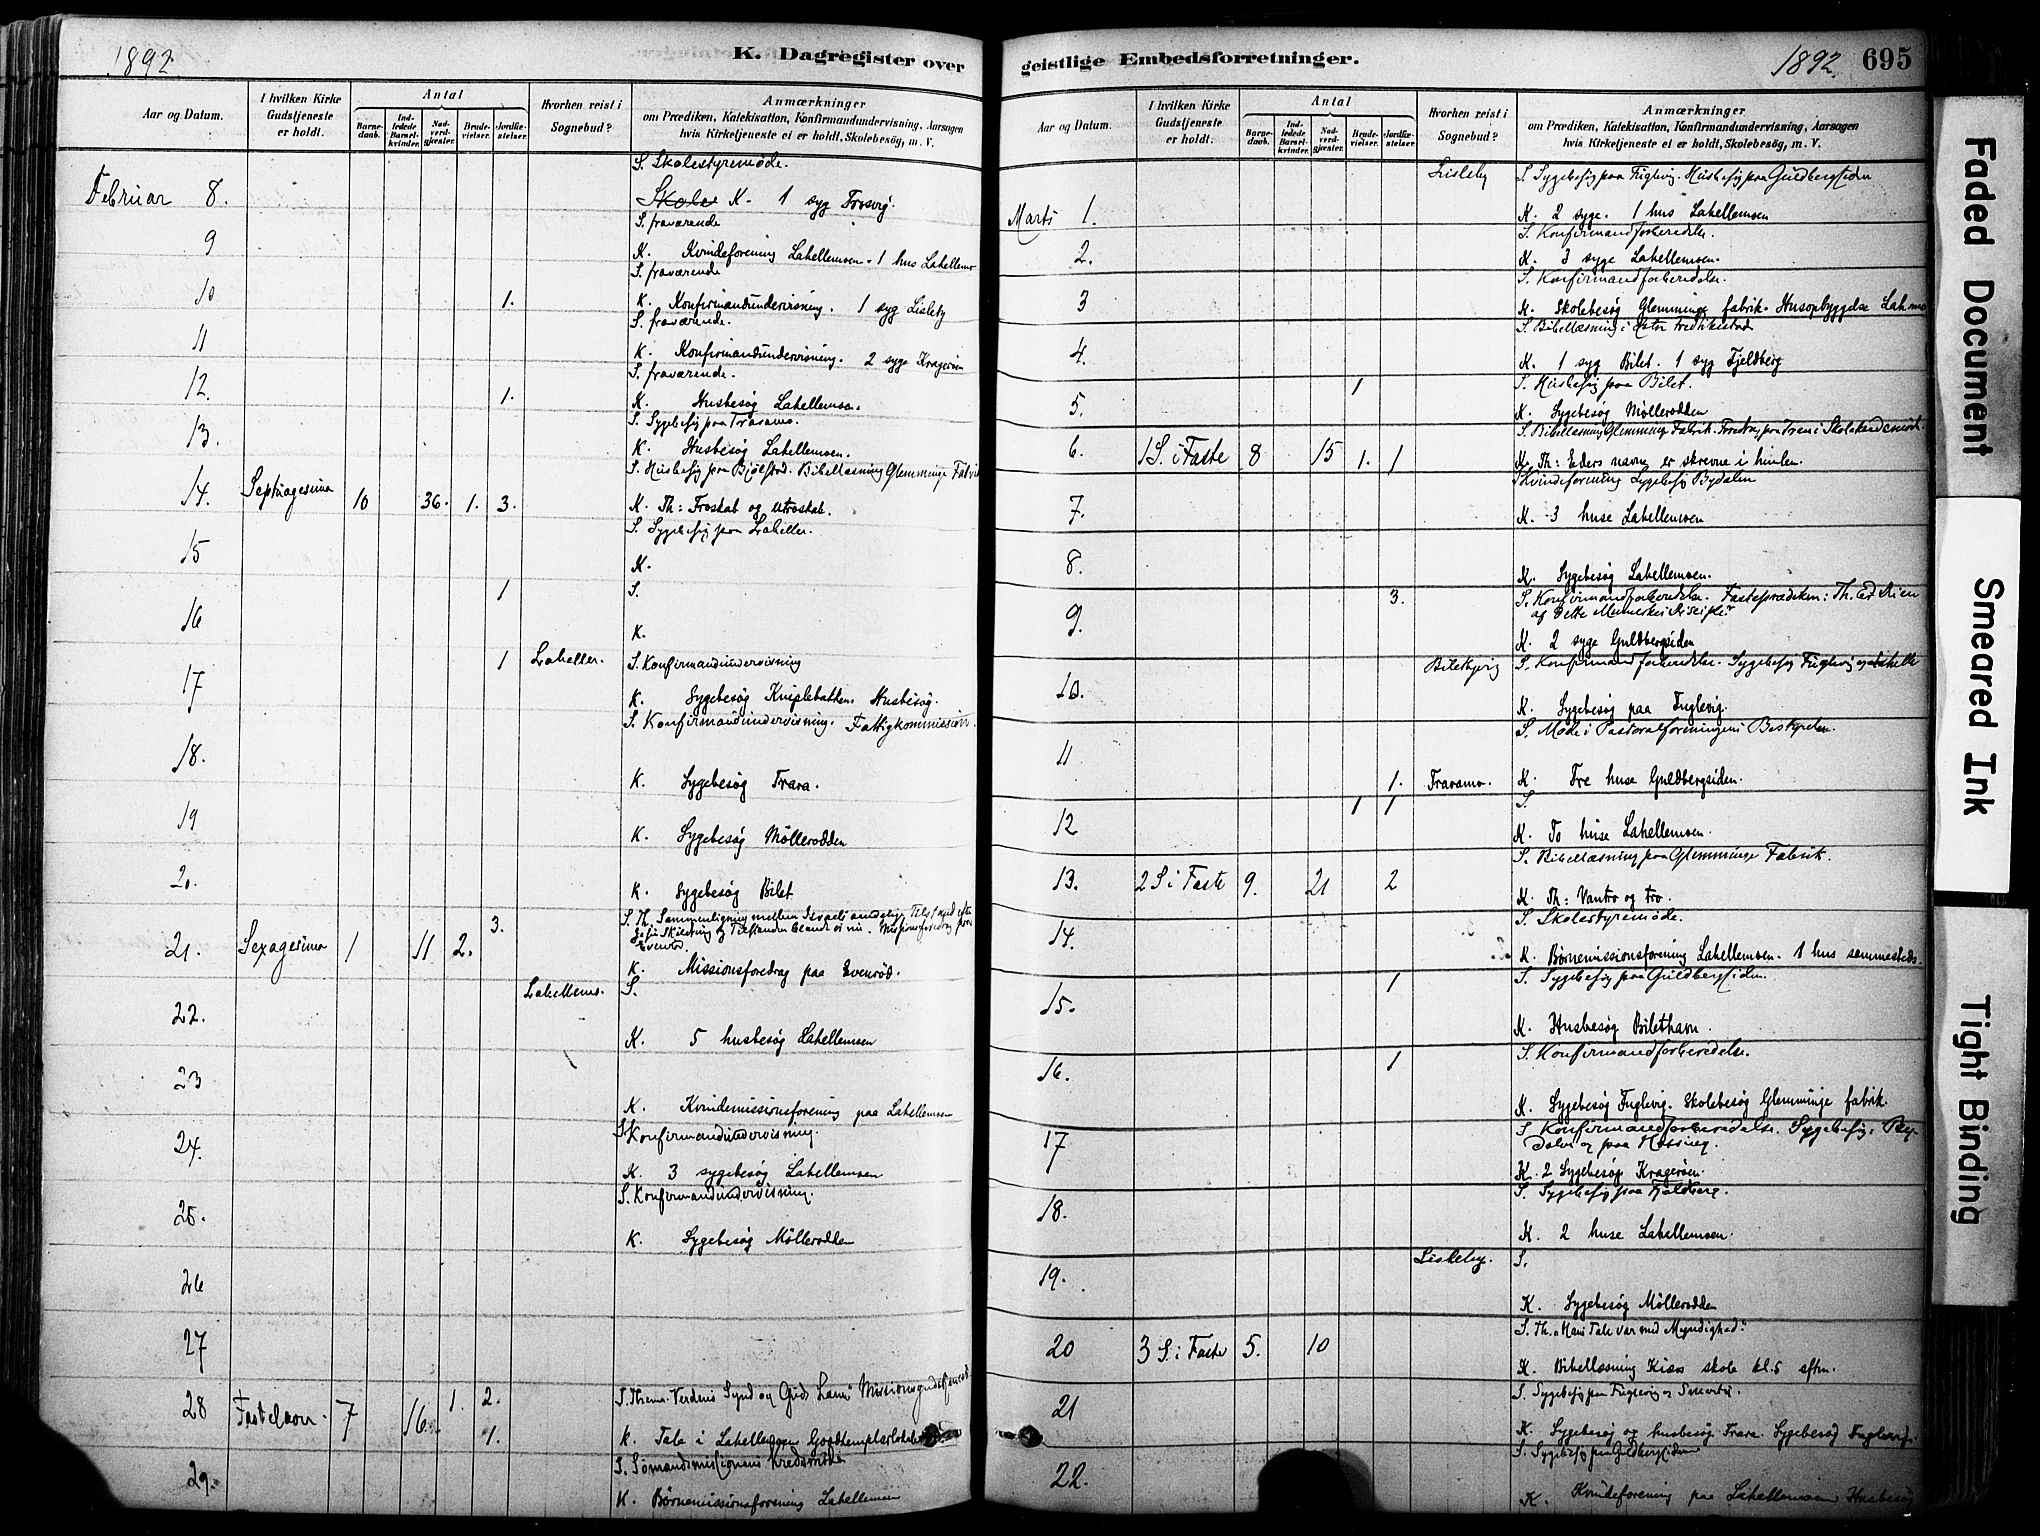 1892
K. Dagregister over
Aar og Datum.
I hvilken Kirke Gudstjeneste er holdt.
Antal
Barne-daab.
Ind-ledede Barsel-kvinder.
Nad-verd-gjæster.
Brude-vielser.
Jordfæ-stelser.
Hvorhen reist i Sognebud?
Anmærkninger
om Prædiken, Katekisation, Konfirmandundervisning, Aarsagen
hvis Kirketjeneste ei er holdt, Skolebesøg, m. V.
S. Skolestyremøde.
Februar 8. K. 1 syg Trosvig.
S. fraværende
9 K. Kvindeforening Lahellemoen. 1 hus Lahellemo
S. fraværende
10 1. K. Konfirmandundervisning. 1 syg Lisleby
S. fraværende.
11 K. Konfirmandundervisning. 2 syge Kragerøen
S. fraværende.
12. 1. K. Husbesøg Lahellemoen.
S. Sygebesøg paa Traramo.
13. K. Husbesøg Lahellemoen.
S. Husbesøg paa Bjølstad. Bibellæsning Glemminge Fabrik
14. Septuagesima 10 36. 1. 3. K. Th: Troskab og utroskab.
S. Sygebesøg paa Lahelle.
15 K.
1 S.
16 K.
1 Lahelle. S. Konfirmandundervisning
17 K. Sygebesøg Kniplebakken. Husbesøg.
S. Konfirmandundervisning. Fattigkommission.
18. K. Sygebesøg Trara.
19 K. Sygebesøg Møllerodden
20. K. Sygebesøg Bilet
3. S. Th. Sammenligning mellem Israels aandelige Tilstand efter
Jesu Skildring og Tilstanden blandt os nu. Missionsforedrag paa
Evenrød.
21. Sexagesima 1 11 2. K. Missionsforedrag paa Evenrød.
Lahellemo. S.
22. K. 5 husbesøg Lahellemoen
23 K. Kvindemissionsforening paa Lahellemoen
S. Konfirmandundervisning.
24. K. 3 sygebesøg Lahellemoen
S. Konfirmandundervisning.
25. K. Sygebesøg Møllerodden
26
27
28 Fastelavn. 7 16. 1. 2. S. Thema: Verdens Synd og Guds Lam. Missionsgudstjeneste
1. K. Tale i Lahellemoens Goodtemplarlokale
S. Sømandsmissionens Kredsmøde
29. K. Børnemissionsforening Lahellemoen
geistlige Embedsforretninger.
1892. 695
Aar og Datum.
I hvilken Kirke Gudstjeneste er holdt.
Antal
Barne-daab.
Ind-ledede Barsel-kvinder.
Nad-verd-gjæster.
Brude-vielser.
Jordfæ-stelser.
Hvorhen reist i Sognebud?
Anmærkninger
om Prædiken, Katekisation, Konfirmandundervisning, Aarsagen
hvis Kirketjeneste ei er holdt, Skolebesøg, m. V.
Lisleby S. Sygebesøg paa Fuglevig. Husbesøg paa Guldbergsiden
Marts 1. K. 2 syge. 1 hus Lahellemoen
S. Konfirmandforberedelse.
2. K. 3 syge Lahellemoen.
S. Konfirmandforberedelse.
3 K. Skolebesøg Glemminge fabrik. Husopbyggelse Lah.mo
S. Bibellæsning i Øster Fredrikstad
4. K. 1 syg Bilet. 1 syg Fjeldberg
1 S. Husbesøg paa Bilet.
5. K. Sygebesøg Møllerodden
S. Bibellæsning Glemminge Fabrik.
6. 1 S. i Faste 8 15 1. 1 K. Th: Eders navne er skrevne i himlen.
Kvindeforening Sygebesøg Bydalen
7. K. 3 huse Lahellemoen
8. K. Sygebesøg Lahellemoen.
3. S. Konfirmandforberedelse. Fasteprædiken: Th. Ed Du en
af dette Menneskes Disciple?
9. K. 2 syge Guldbergsiden
S. Konfirmandforberedelse. Sygebesøg Fuglevig og Lahelle
10. K. Sygebesøg paa Fuglevig.
S. Møde i Pastoralforeningens Bestyrelse.
11 1. Traramo. K. Tre huse Guldbergsiden.
1 1 S
12 K. To huse Lahellemoen.
S. Bibellæsning paa Glemminge Fabrik.
13. 2 S i Faste 9. 21 2 K. Th: Vantro og tro.
S. Skolestyremøde.
14. K. Børnemissionsforening Lahellemoen. 1 hus sammesteds.
1 S. Sygebesøg paa Guldbergsiden.
15. K. Husbesøg Bilethavn.
1 S. Konfirmandforberedelse.
16. K. Sygebesøg Fuglevig. Skolebesøg Glemminge fabrik
S. Konfirmandforberedelse. Sygebesøg i By-
dalen og paa
17 K. 2 Sygebesøg Kragerøen.
S. Sygebesøg paa Fjeldberg.
18. K. 2 huse Lahellemoen.
Lisleby. S.
19. K. Sygebesøg Møllerodden
S. Th. "Hans Tale var med Myndighed."
20 3 S. i Faste 5. 10 K. Bibellæsning Kiæs skole kl. 5 eftm.
S. Sygebesøg paa Fuglevig og
21 K. Sygebesøg og husbesøg Trara. Sygebesøg Fuglevig.
S. Sygebesøg paa Guldbergsiden
22. K. Kvindeforening paa Lahellemoen Husbesøg
Faded Document
Smeared Ink
Tight Binding